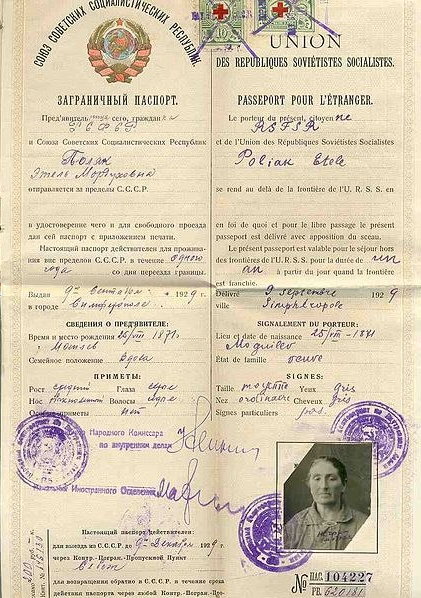 СОЮЗ СОВЕТСКИХ СОЦИАЛИСТИЧЕСКИХ РЕСПУБЛИК
ЗАГРАНИЧНЫЙ ПАСПОРТ.
Пред'явитель сего, граждан ка
РСФСР
и Союза Советских Социалистических Республик
Поляк
Этель Мордуховна
отправляется за пределы С.С.С.Р.
в удостоверение чего и для свободного проезда
дан сей паспорт с приложением печати.
Настоящий паспорт действителен для прожива-
ния вне пределов С.С.С.Р. в течение одного
года со дня переезда границы.
Выдан 9го Сентября 1929 г.
в городе Симферополе
СВЕДЕНИЯ О ПРЕД'ЯВИТЕЛЕ:
Время и место рождения 25/VIII 1871 г.
г. Могилев
Семейное положение вдова
ПРИМЕТЫ:
Рост средний Глаза серые
Нос Волосы
Особые приметы нет
Народного Комиссара
по внутренним делам
Начальник Иностранного Отделения
Настоящий паспорт действителен:
для выезда из С.С.С.Р. до 9го Декабря 1929 г.
через Контр.-Погран.-Пропускной Пункт
для возвращения обратно в С.С.С.Р. в течение срока
действия паспорта через любой Контр.-Погран.-Про-
UNION
DES REPUBLIQUES SOVIÉTISTES SOCIALISTES.
PASSEPORT POUR L'ÉTRANGER.
Le porteur du présent, citoyen ne
RSFSR
et de l'Union des Républiques Soviétistes Socialistes
Poliak Etele
se rend au delà de la frontière de l'U. R. S. S. en
en foi de quoi et pour le libre passage le présent
passeport est délivré avec apposition du sceau.
Le présent passeport est valable pour le séjour hors
des frontières de l'U. R. S. S. pour la durée de un
an à partir du jour quand la frontière
est franchie.
Délivré 9 septembre 1929
ville Simphéropole
SIGNALEMENT DU PORTEUR:
Lieu et date de naissance 25/VIII-1871
Moguilev
État de famille veuve
SIGNES:
Taille moyenne Yeux gris
Nez ordinaire Cheveux gris
Signes particuliers pas.
№ ПАС. 104227
РЕ. 620181